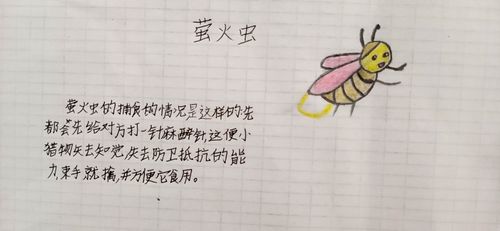 萤火虫
萤火虫的捕食的情况是这样的:先
都会先给对方打一针麻醉针,这便小
猎物失去知觉,失去防卫抵抗的能
力,束手就擒,并方便它食用。